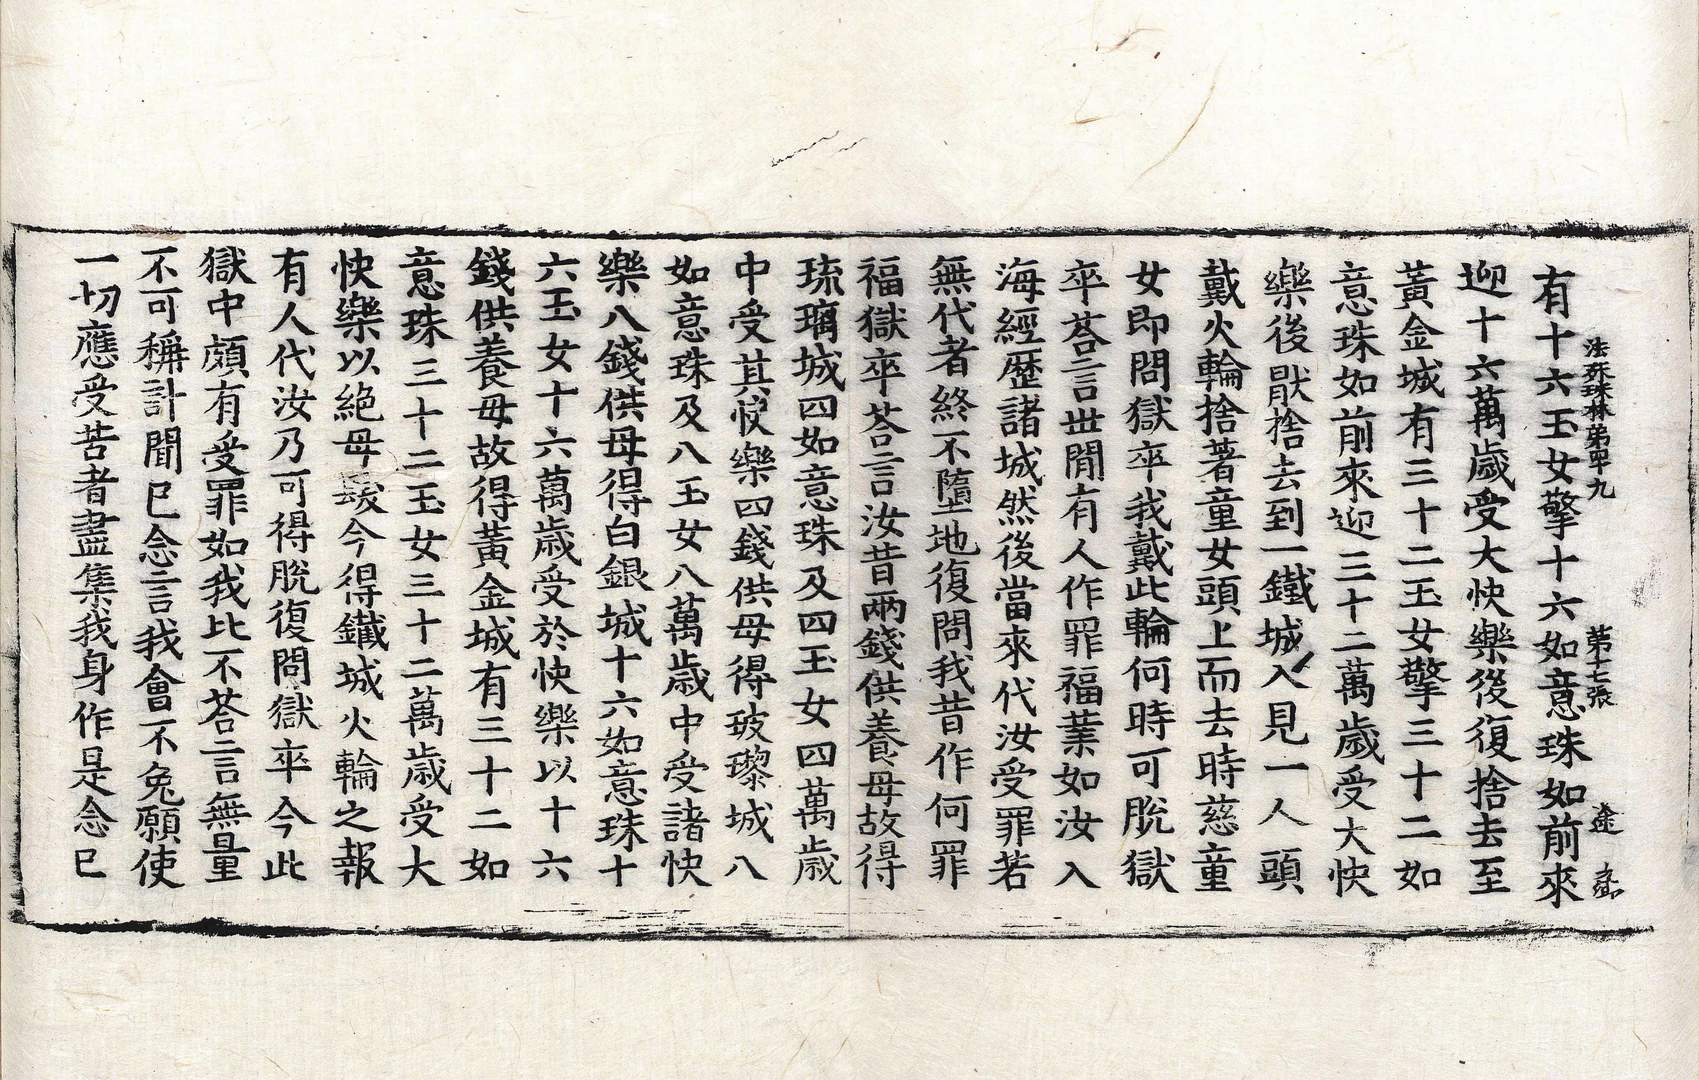 法苑珠林第四十九 第十七張 途
有十六玉女擎十六如意珠如前來
迎十六萬歲受大快樂後復捨去至
黃金城有三十二玉女擎三十二如
意珠如前來迎三十二萬歲受大快
樂後猒捨去到一鐵城入見一人頭
戴火輪捨著童女頭上而去時慈童
女即問獄卒我戴此輪何時可脫獄
卒荅言世閒有人作罪福業如汝入
海經歷諸城然後當來代汝受罪若
無代者終不墮地復問我昔作何罪
福獄卒荅言汝昔兩錢供養母故得
琉璃城四如意珠及四玉女四萬歲
中受其快樂四錢供母得玻瓈城八
如意珠及八玉女八萬歲中受諸快
樂八錢供母得白銀城十六如意珠十
六玉女十六萬歲受於快樂以十六
錢供養母故得黃金城有三十二如
意珠三十二玉女三十二萬歲受大
快樂以絕母髮今得鐵城火輪之報
有人代汝乃可得脫復問獄卒今此
獄中頗有受罪如我比不荅言無量
不可稱計聞已念言我會不免願使
一切應受苦者盡集我身作是念已